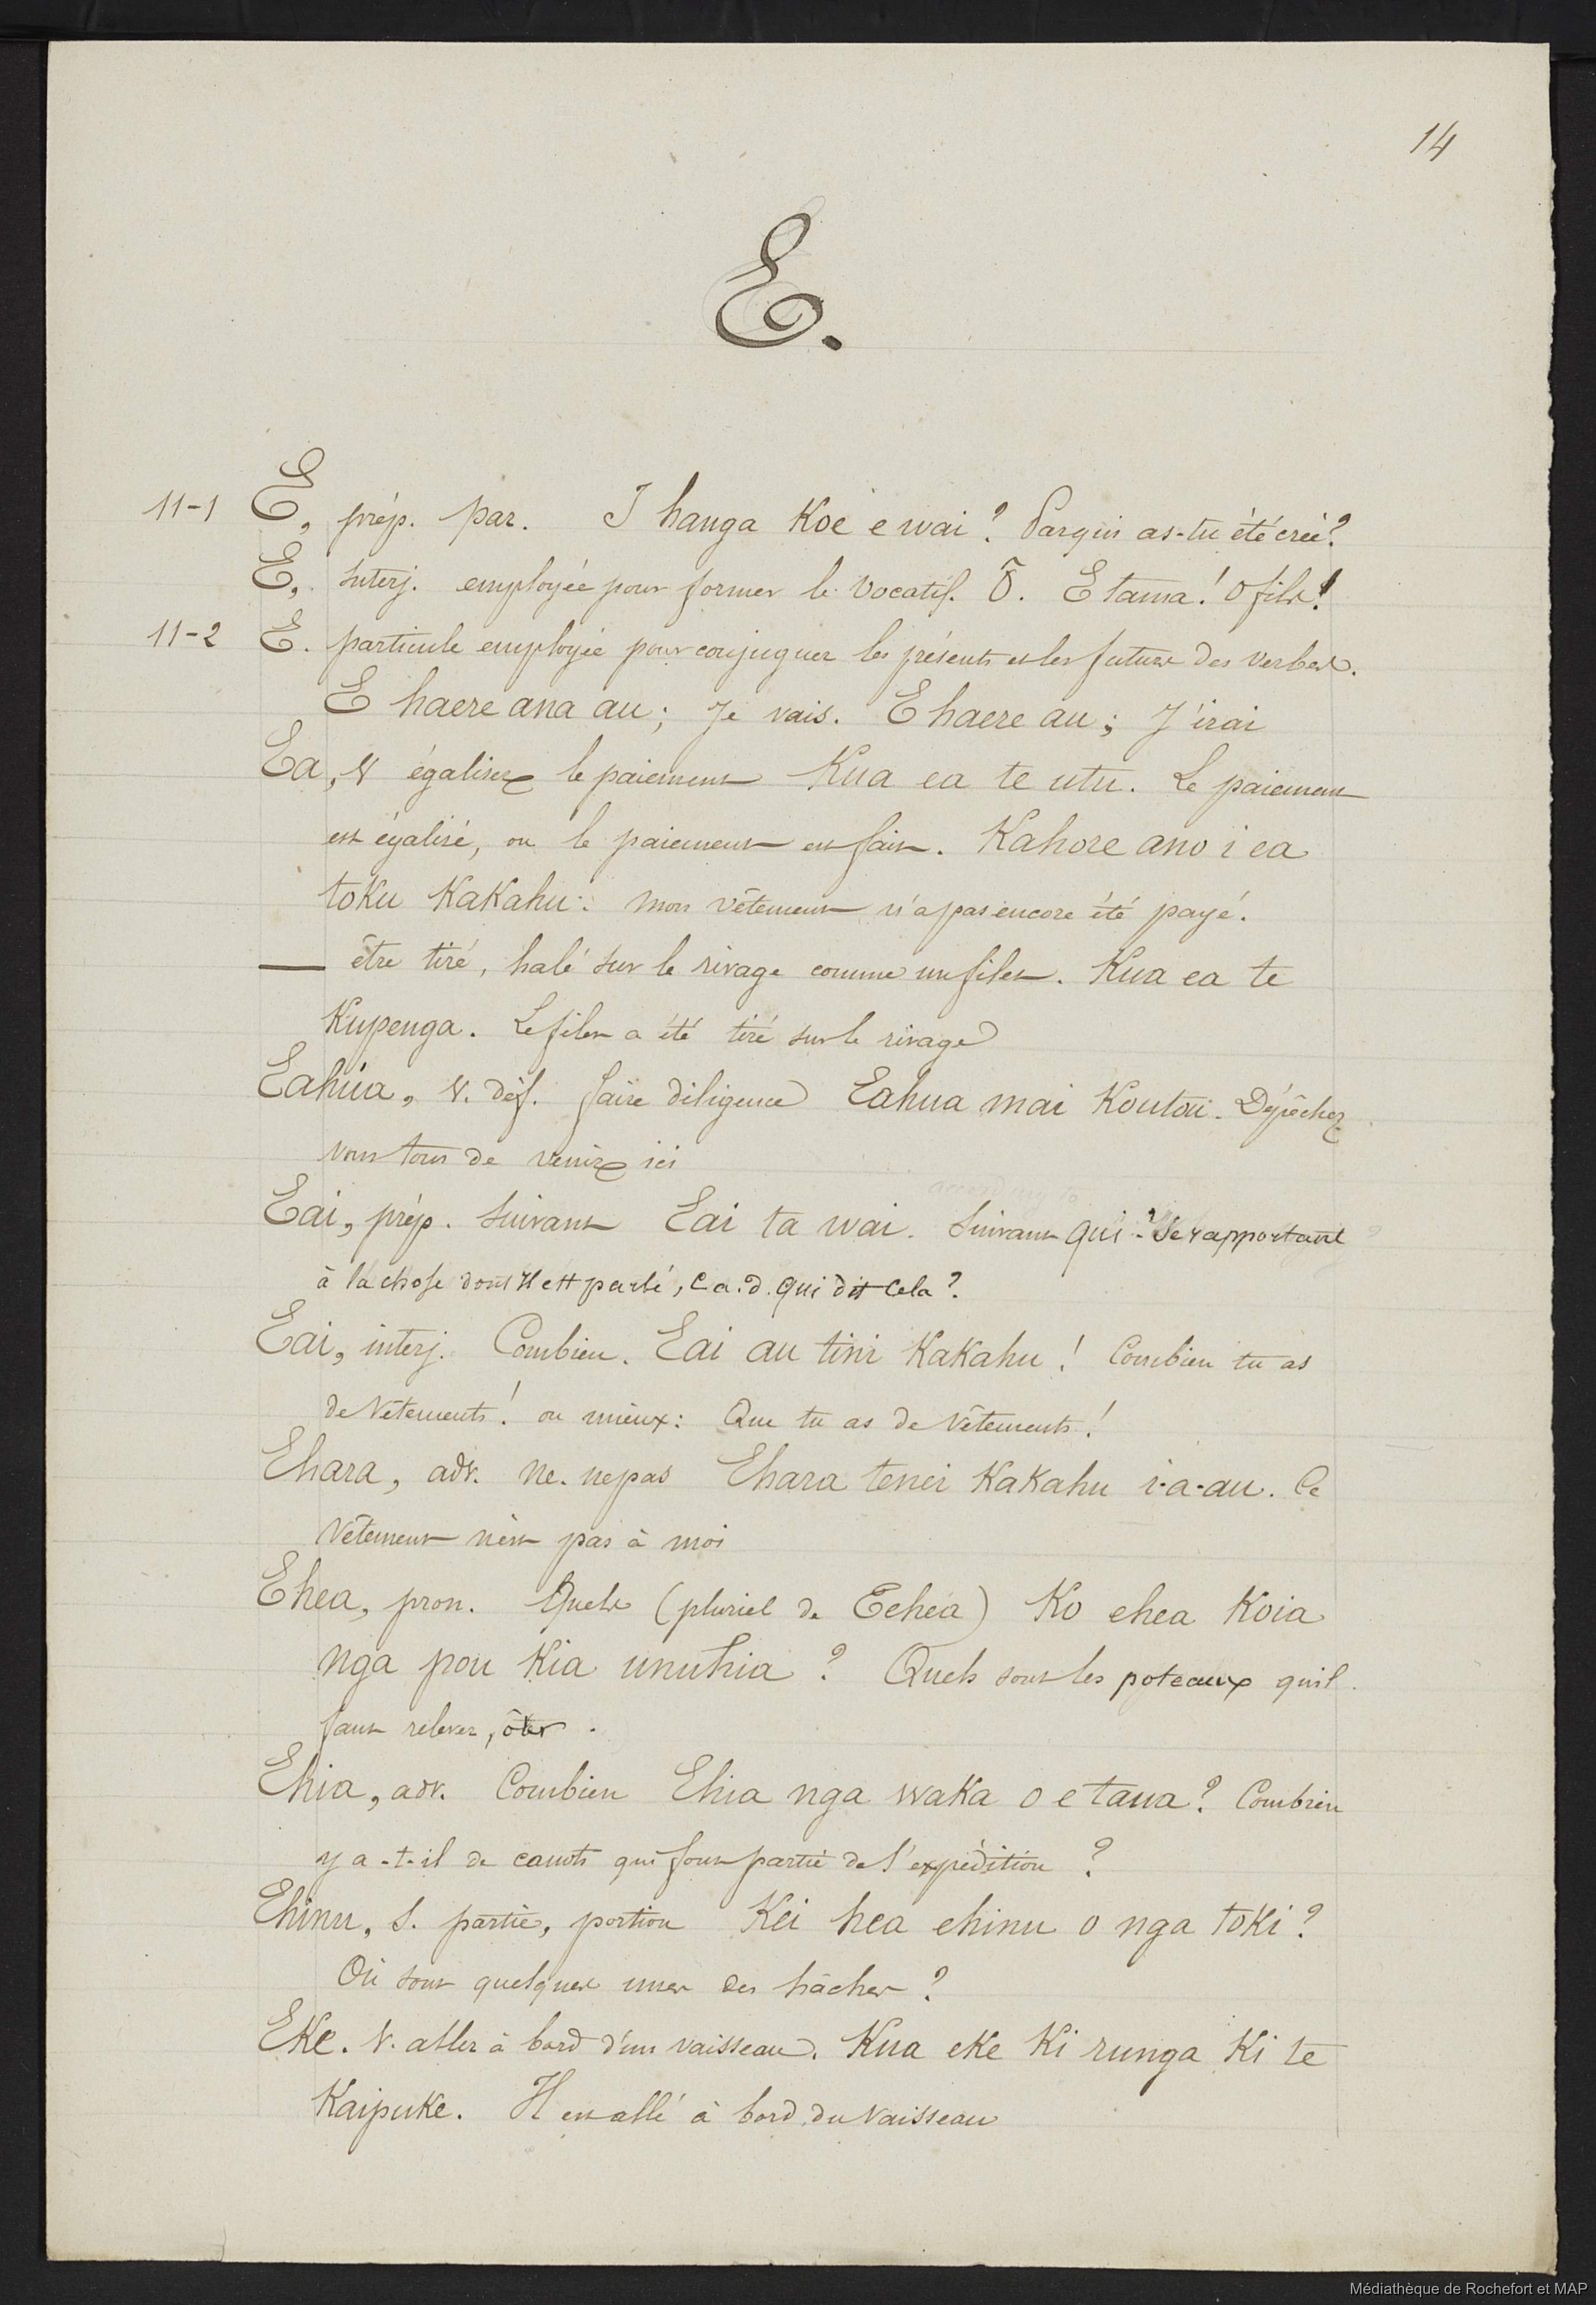 14
E.
11-1 E, prép. par. I hanga Koe e wai? Par qui as-tu été créé?
E, interj. employée pour former le vocatif. Ô. E tama! O fils!
11-2 E. particule employée pour conjuguer les présents et les futurs des verbes.
E haere ana au; Je vais. E haere au; J'irai
Ea, v égaliser le paiement Kua ea te utu. Le paiement
est égalisé, ou le paiement est fait. Kahore ano i ea
toku Kakahu: mon vêtement n'a pas encore été payé.
— être tiré, halé sur le rivage comme un filet. Kua ea te
Kupenga. Le filet a été tiré sur le rivage
Eahua, v. déf. faire diligence Eahua mai Koutou. Dépêchez
vous tous de venir ici
according to
Eai, prép. suivant Eai ta wai. Suivant qui? Se rapportant
à la chose dont Il est parlé, C a.d. qui dit Cela?
Eai, interj. Combien. Eai au tini Kakahu! Combien tu as
de vêtements! ou mieux: Que tu as de vêtements!
Ehara, adv. ne. ne pas Ehara tenei Kakahu i-a-au. Ce
vêtement n'est pas à moi
Ehea, pron. Quels (pluriel de Eehea) Ko ehea Koia
nga pou Kia unuhia? Quels sont les poteaux qu'il
faut relever, ôter.
Ehia, adv. Combien Ehia nga waka o e taua? Combien
y a-t-il de canots qui font partie de l'expédition?
Ehinu, s. partie, portion Kei hea ehinu o nga toki?
Où sont quelques unes des hâches?
Eke. v. aller à bord d'un vaisseau. Kua eke Ki runga Ki te
Kaipuke. Il est allé à bord du vaisseau
Médiathèque de Rochefort et MAP